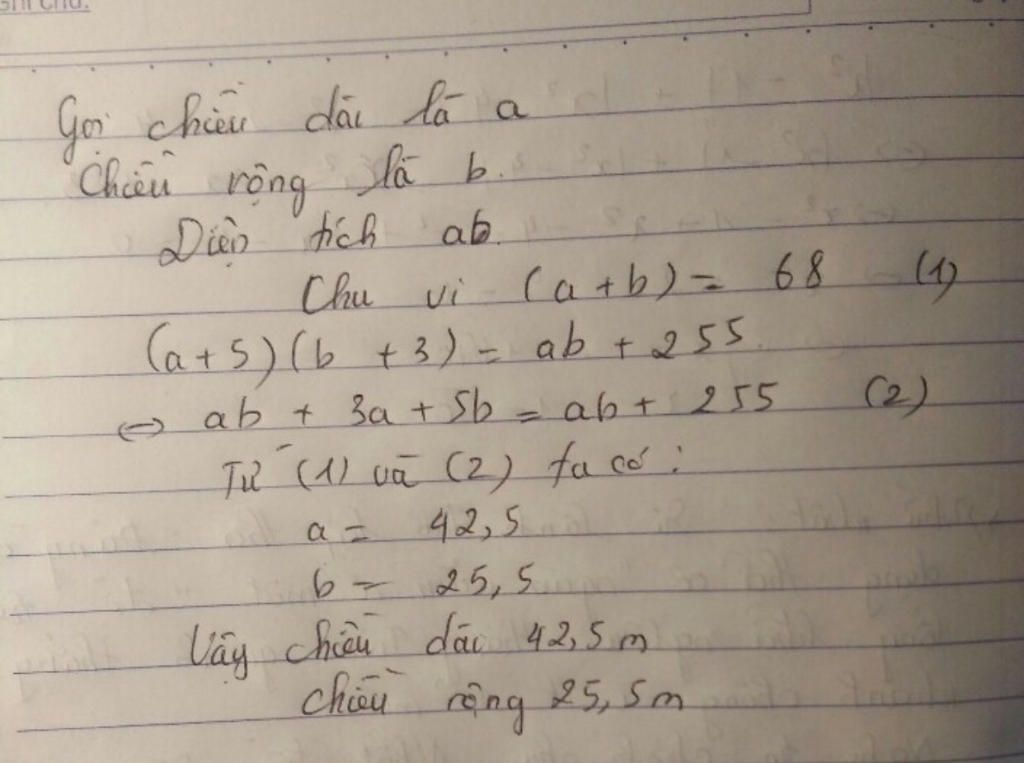 Ghi chú:
Gọi chiều dài là a
Chiều rộng là b.
Diện tích ab.
Chu vi (a+b) = 68 (1)
(a+5)(b+3) = ab + 255
⇔ ab + 3a + 5b = ab + 255 (2)
Từ (1) và (2) ta có:
a = 42,5
b = 25,5
Vậy chiều dài 42,5m
chiều rộng 25,5m